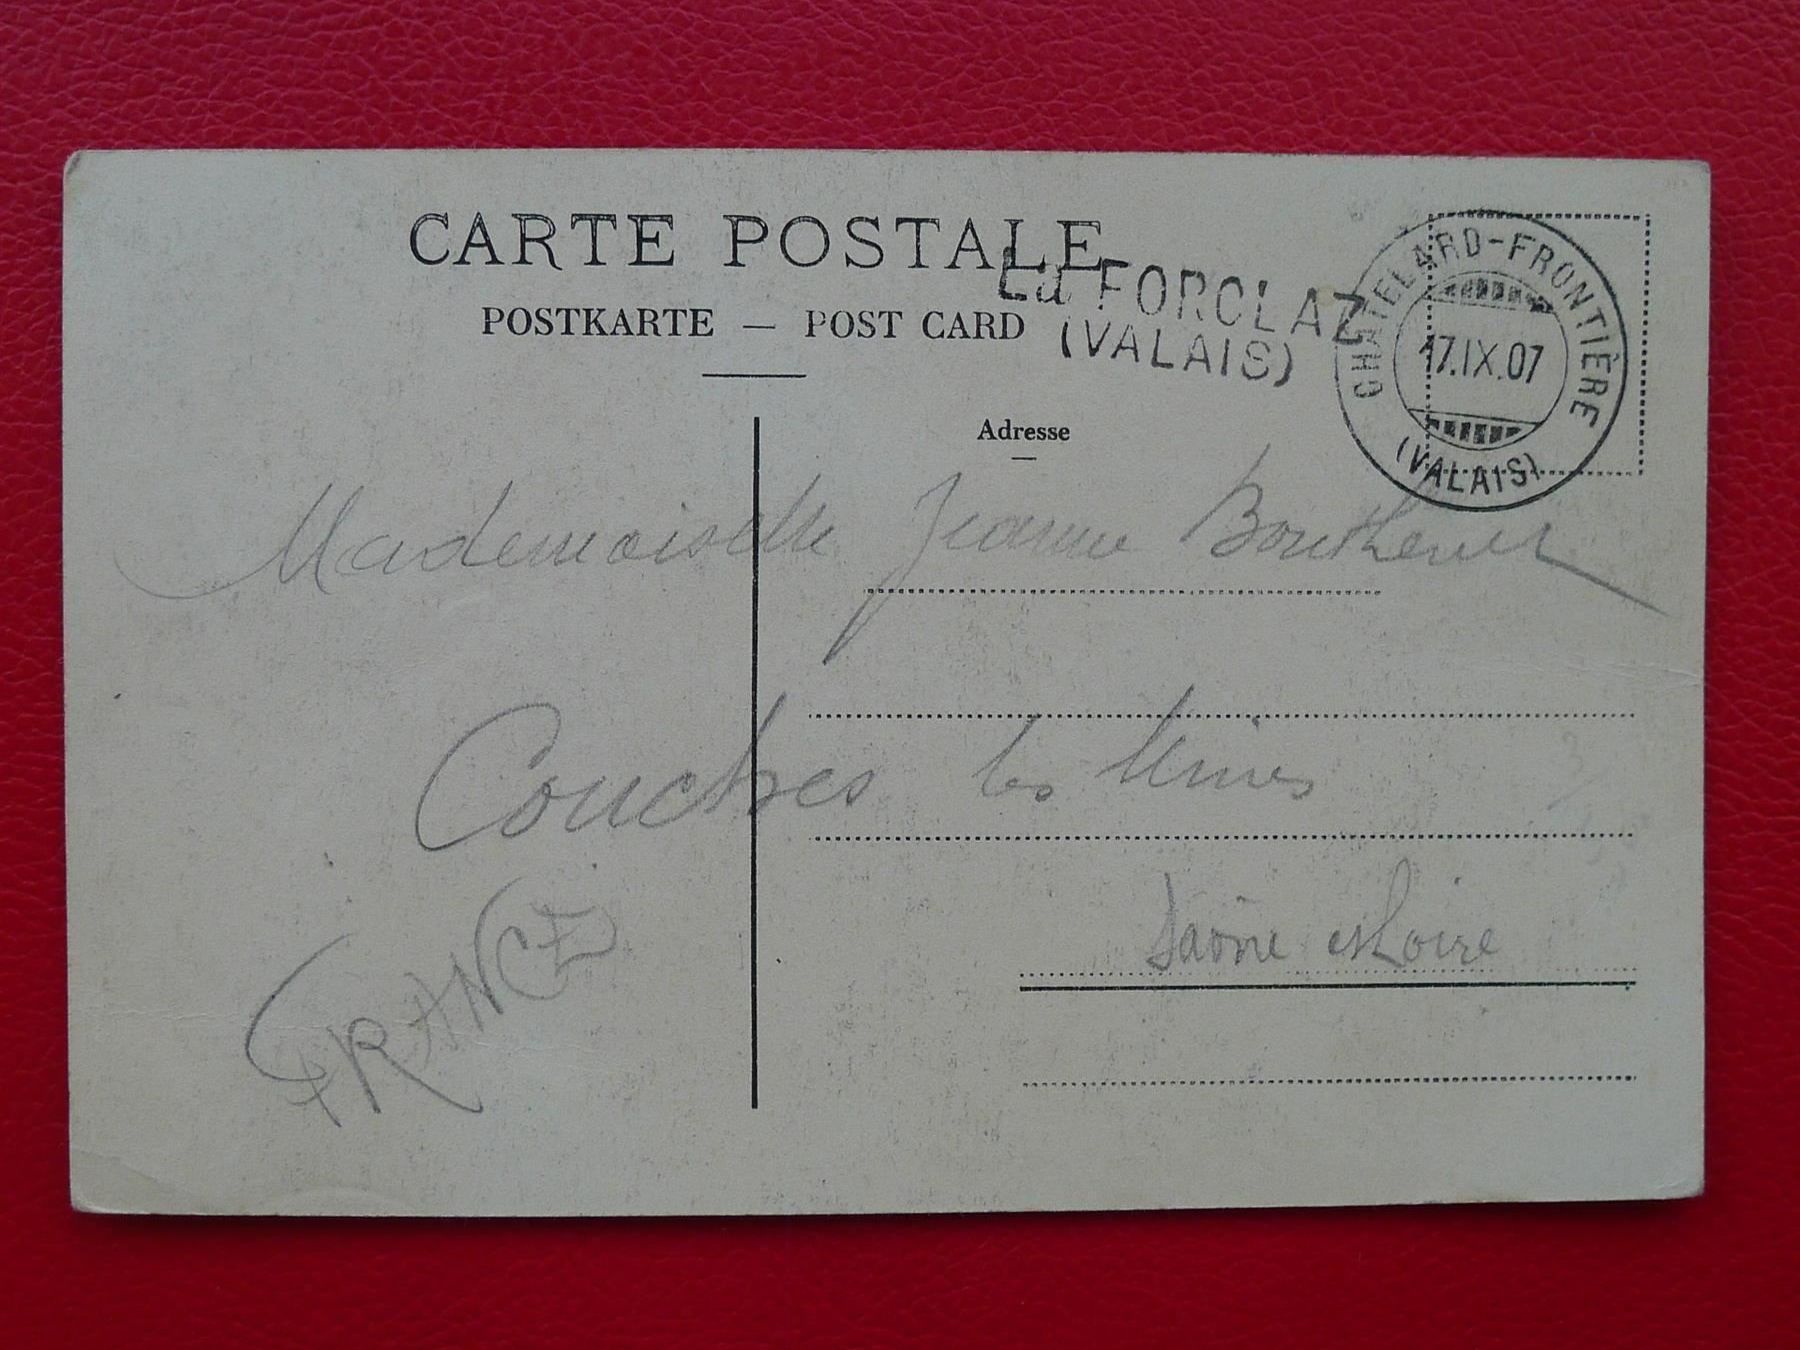 CARTE POSTALE
POSTKARTE — POST CARD
La FORCLAZ
(VALAIS)
CHATELARD-FRONTIÈRE
17.IX.07
(VALAIS)
Adresse
Mademoiselle Jeanne
Couches les Mines
Saône et Loire
FRANCE